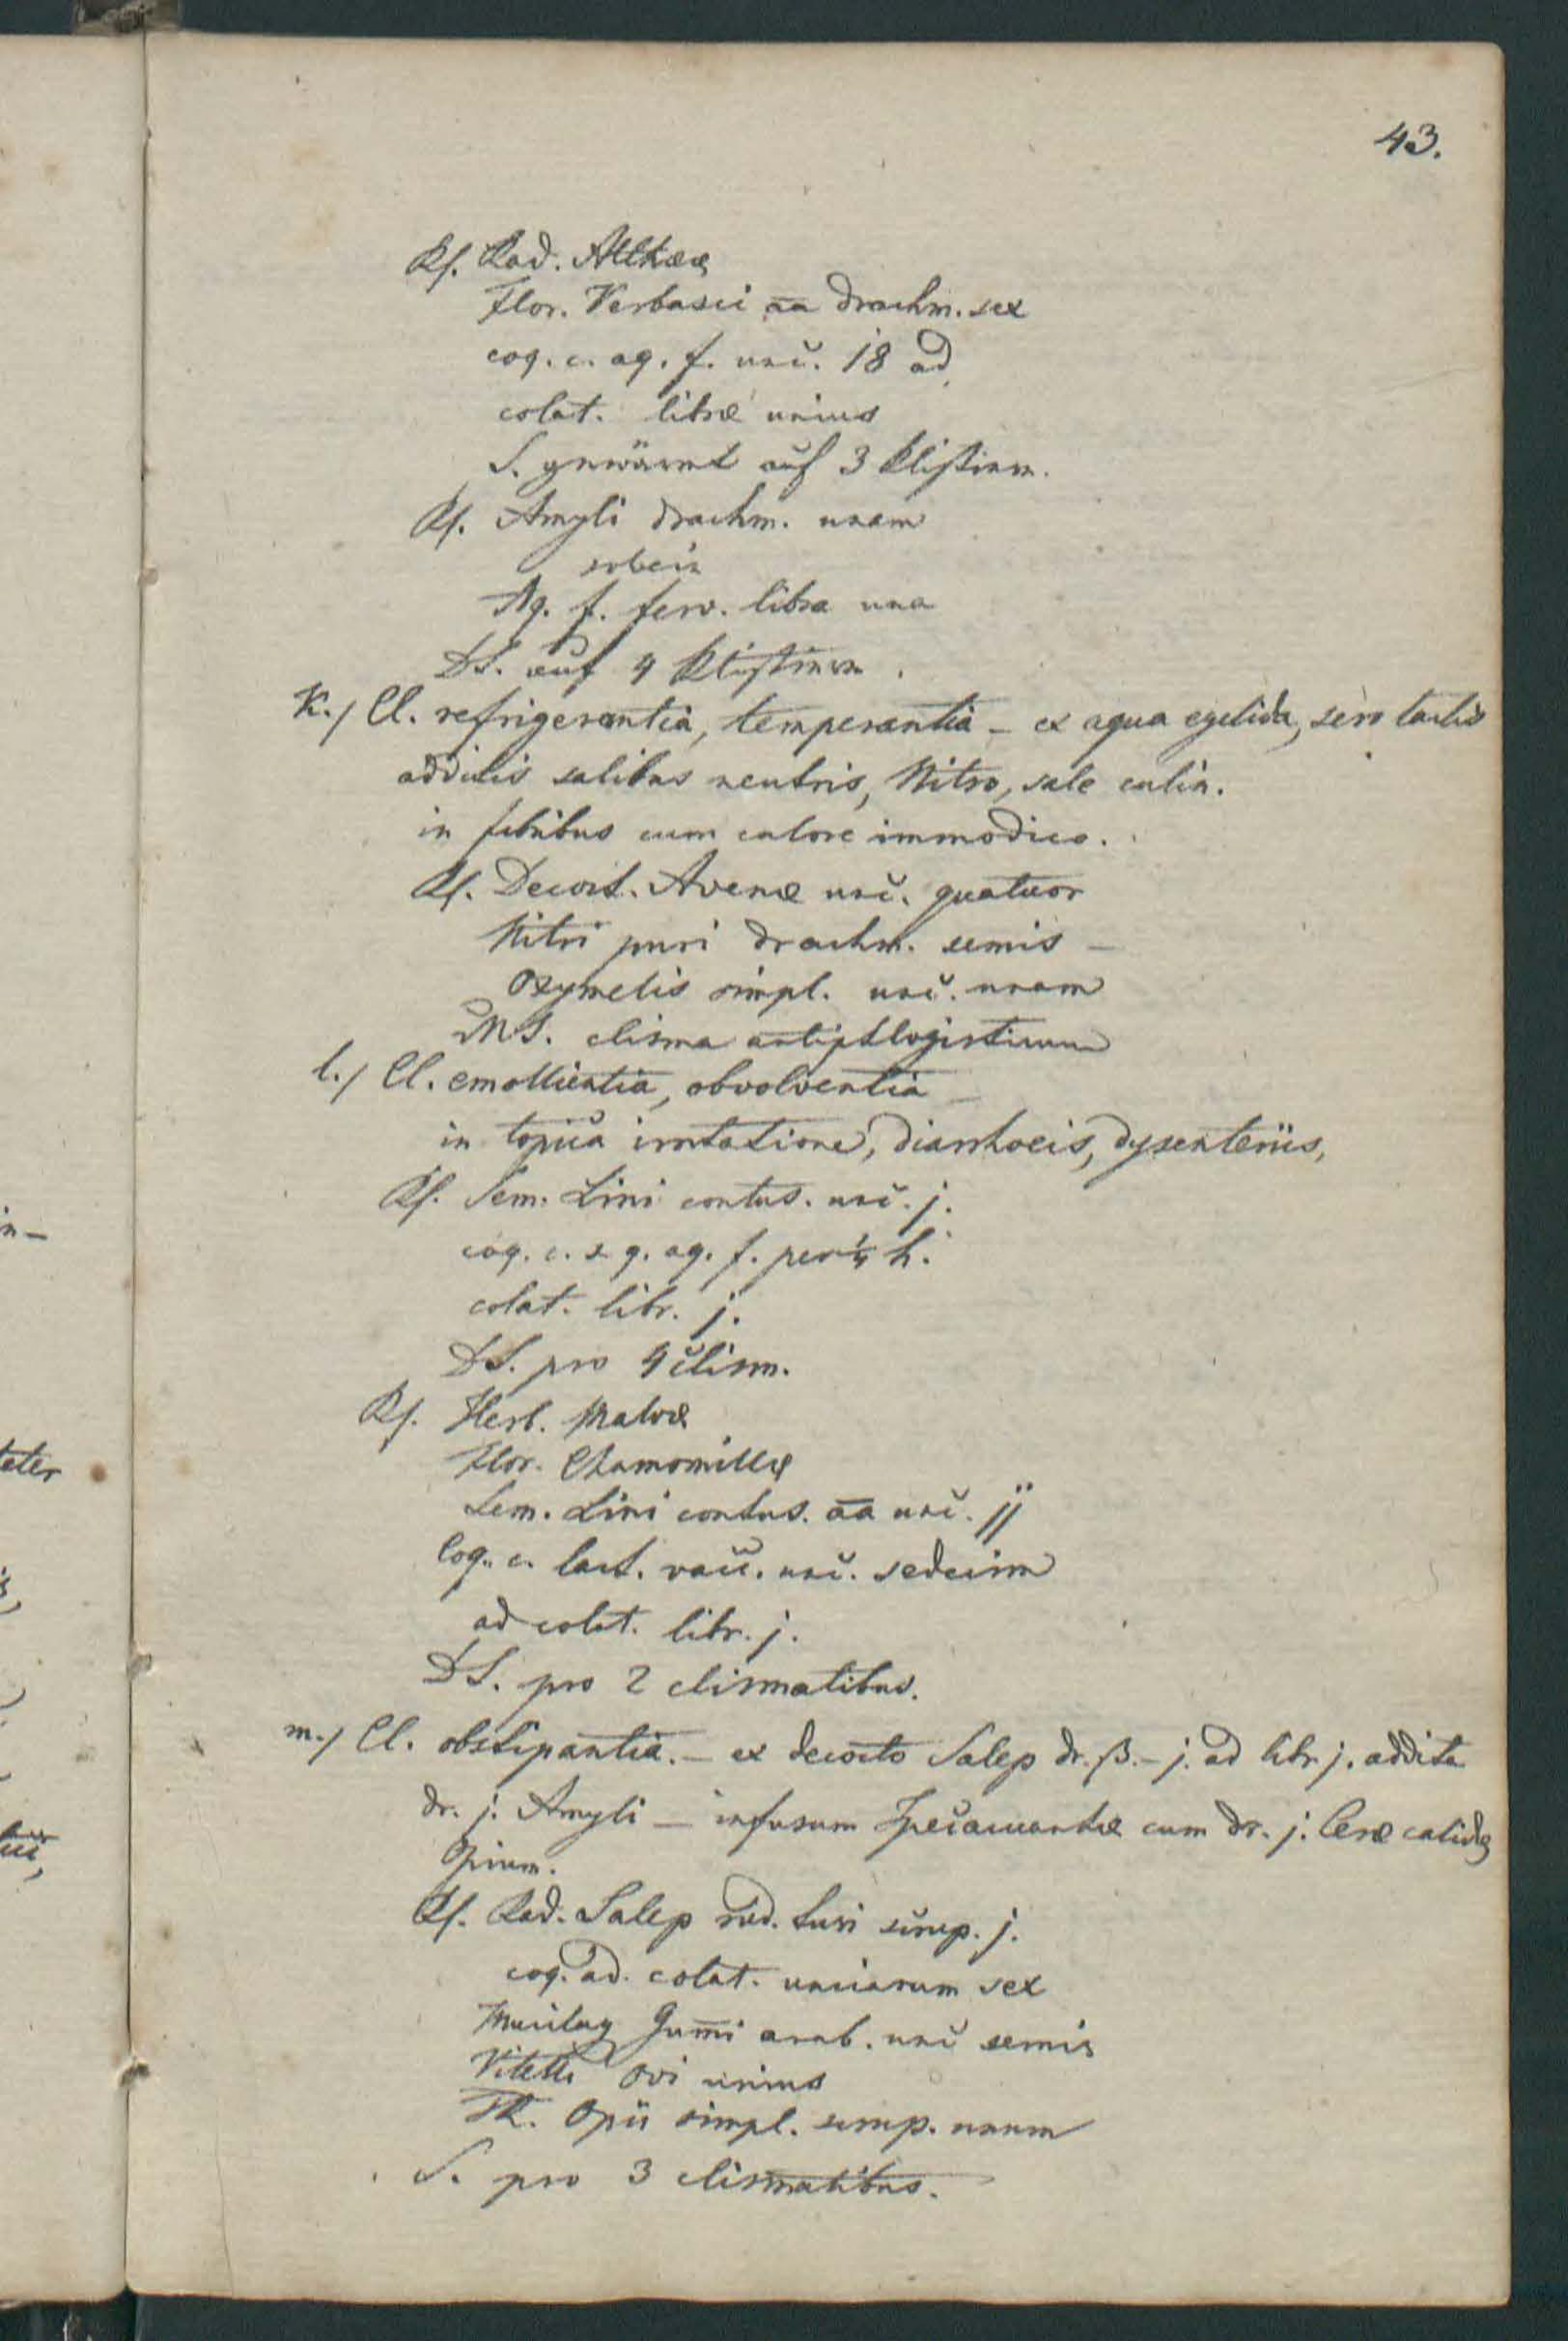 43.
Rf. Rad. Altheæ
Flor. Verbasci aa drachm. sex
coq. c. aq. f. unc. 18 ad
colat. libræ unius
S. gewärmt auf 3 Klistiere.
Rf. Amyli drachm. unam
solve in
Aq. f. ferv. libra una
DS. auf 4 Klistiere.
K./ Cl. refrigerantia, temperantia – ex aqua egelida, sero lactis
additis salibus neutris, Nitro, sale culin.
in febribus cum calore immodico.
Rf. Decoct. Avenæ unc. quatuor
Nitri puri drachm. semis –
Oxymelis simpl. unc. unam
MS. clisma antiphlogisticum
l./ Cl. emollientia, obvolventia –
in topica irritatione, diarrhoeis, dysenteriis,
Rf. Sem. Lini contus. unc. j.
coq. c. s. q. aq. f. per ¼ h.
colat. libr. j.
DS. pro 4 clism.
Rf. Herb. Malvæ
Flor. Chamomillæ
Sem. Lini contus. aa unc. jj
Coq. c. lact. vacc. unc. sedecim
ad colat. libr. j.
DS. pro 2 clismatibus.
m./ Cl. obstipantia. – ex decocto Salep dr. ß. – j. ad libr. j. addita
dr. j. Amyli – infusum Ipecacuanhæ cum dr. j. Ceræ calidæ
Opium.
Rf. Rad. Salep rud. tusi scrup. j.
coq. ad. colat. unciarum sex
Mucilag Gummi arab. unc semis
Vitelli Ovi unius
Tk. Opii simpl. scrup. unum
S. pro 3 clismatibus.
in –
teter